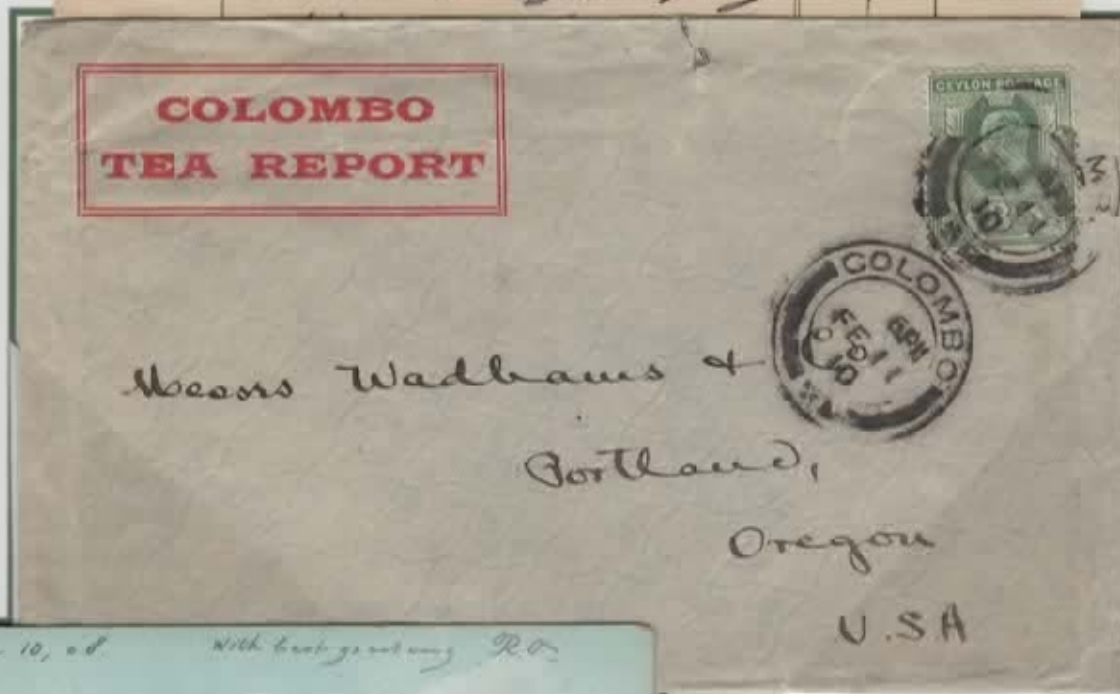 COLOMBO
TEA REPORT
CEYLON POSTAGE
COLOMBO
6 PM
FE 11
10
Messrs Wadhams &
Portland,
Oregon
U.S.A
10, 08 With best greeting